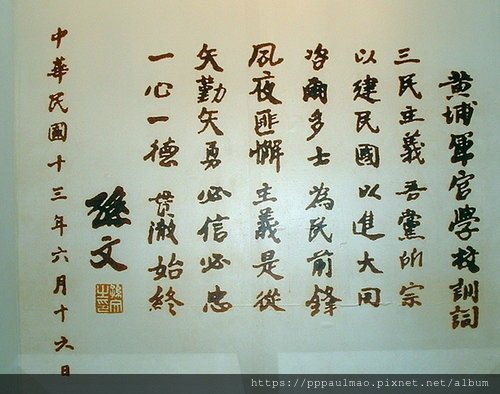 黃埔軍官學校訓詞
三民主義 吾黨所宗
以建民國 以進大同
咨爾多士 為民前鋒
夙夜匪懈 主義是從
矢勤矢勇 必信必忠
一心一德 貫澈始終
孫文
孫文之印
中華民國十三年六月十六日
https://pppaulmao.pixnet.net/album